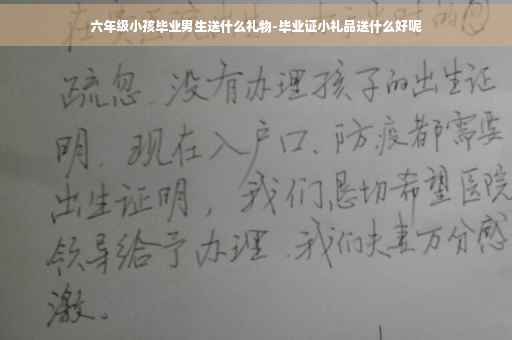 六年级小孩毕业男生送什么礼物-毕业证小礼品送什么好呢
疏忽、没有办理孩子的出生证
明、现在入户口、防疫都需要
出生证明，我们恳切希望医院
领导给予办理、我们夫妻万分感
激。